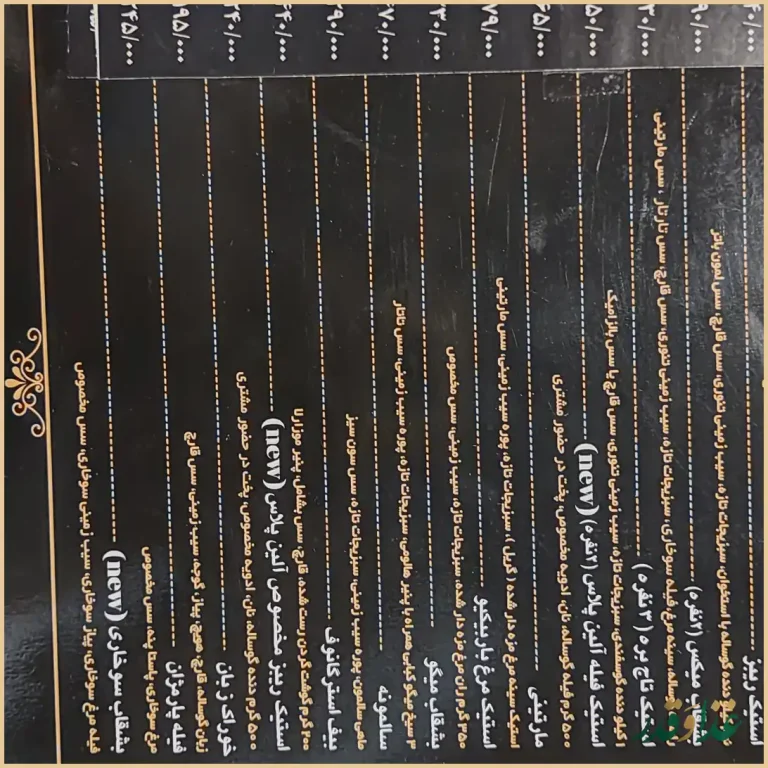 استیک ریبز ۶۰/۰۰۰
دنده گوساله با استخوان، سبزیجات تازه، سیب زمینی تنوری، سس قارچ، سس لمون باتر
بشقاب میکس (۲نفره) ۹۰/۰۰۰
سینه مرغ، فیله سوخاری، سبزیجات تازه، سیب زمینی تنوری، سس قارچ، سس تارتار، سس مارتینی
استیک تاج بره (۳ نفره) ۳۰/۰۰۰
۱ کیلو دنده گوسفندی، سبزیجات تازه، سیب زمینی تنوری، سس قارچ یا سس بالزامیک
استیک فیله آلبن پلاس (۲نفره) (new) ۵۰/۰۰۰
۵۰۰ گرم فیله گوساله، نان، ادویه مخصوص، پخت در حضور مشتری
مارتینی ۶۵/۰۰۰
استیک سینه مرغ مزه دار شده (گریل)، سبزیجات تازه، پوره سیب زمینی، سس مارتینی
استیک مرغ باربیکیو ۷۹/۰۰۰
۳۵۰ گرم ران مرغ مزه دار شده، سبزیجات تازه، سیب زمینی، سس مخصوص
بشقاب میگو ۳۰/۰۰۰
۳ سیخ میگو کبابی همراه با پنیر هالومی، سبزیجات تازه، پوره سیب زمینی، سس تاتار
سالمونه ۷۰/۰۰۰
ماهی سالمون، پوره سیب زمینی، سبزیجات تازه، سس سون سیز
بیف استرگانوف ۹۰/۰۰۰
۲۰۰ گرم گوشت گردن رست شده، قارچ، سس بشامل، پنیر موزارلا
استیک ریبز مخصوص آلبن پلاس (new) ۴۰/۰۰۰
۵۰۰ گرم دنده گوساله، نان، ادویه مخصوص، پخت در حضور مشتری
خوراک زبان ۴۰/۰۰۰
زبان گوساله، قارچ، هویج، پیاز، گوجه، سیب زمینی، سس قارچ
فیله پارمژان ۹۵/۰۰۰
مرغ سوخاری، پاستا پنه، سس مخصوص
بشقاب سوخاری (new) ۴۵/۰۰۰
فیله مرغ سوخاری، پیاز سوخاری، سیب زمینی سوخاری، سس مخصوص